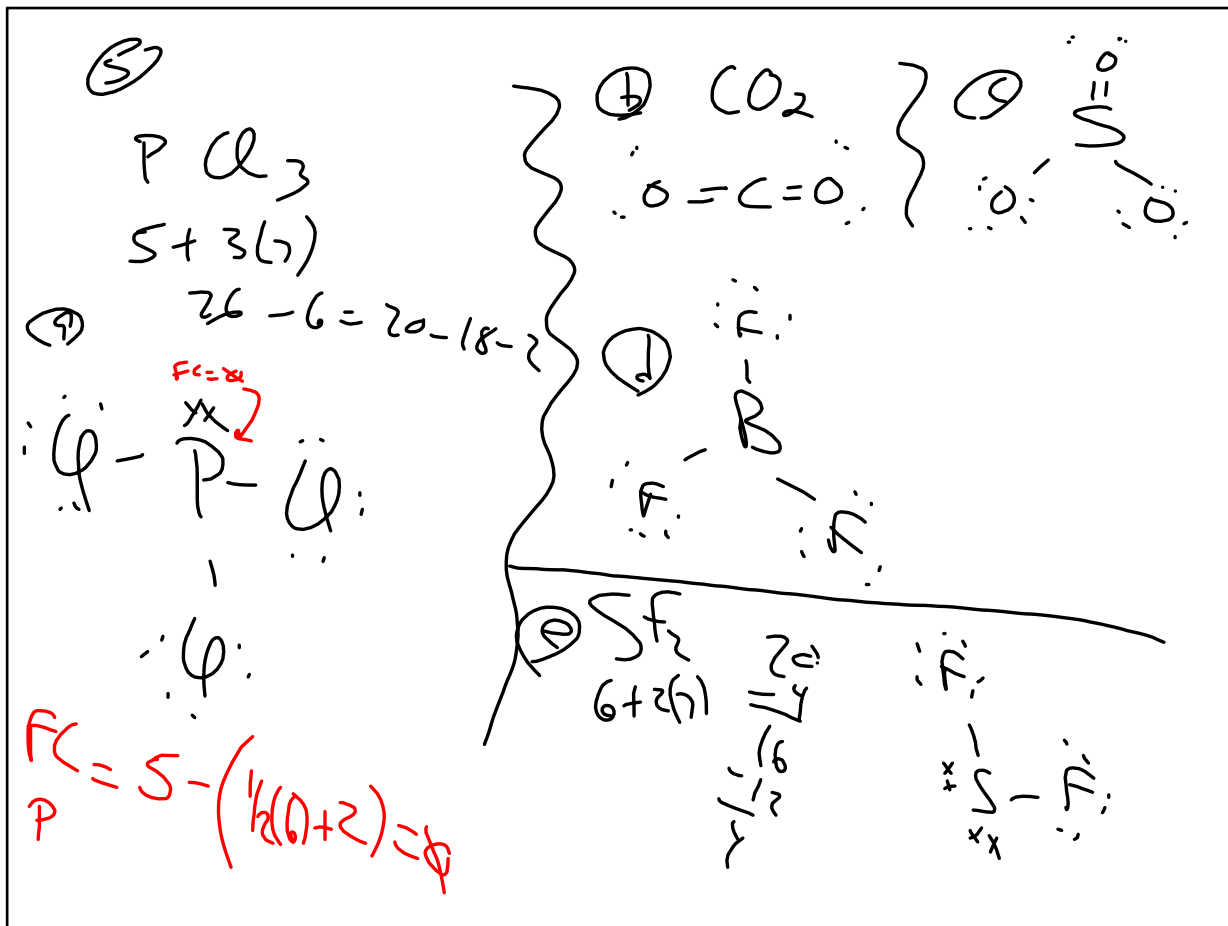 5
P Cl3
5 + 3(7)
26 - 6 = 20 - 18 - 2
a
FC =
xx
:Cl - P - Cl:
|
:Cl:
FC = 5 - (1/2(6) + 2) = 0
P
b CO2
O = C = O
c
O
||
S
O O
d
:F:
|
B
F F
e SF2
6 + 2(7) = 20
-4
16
-12
4
:F:
\
xx S - F:
xx